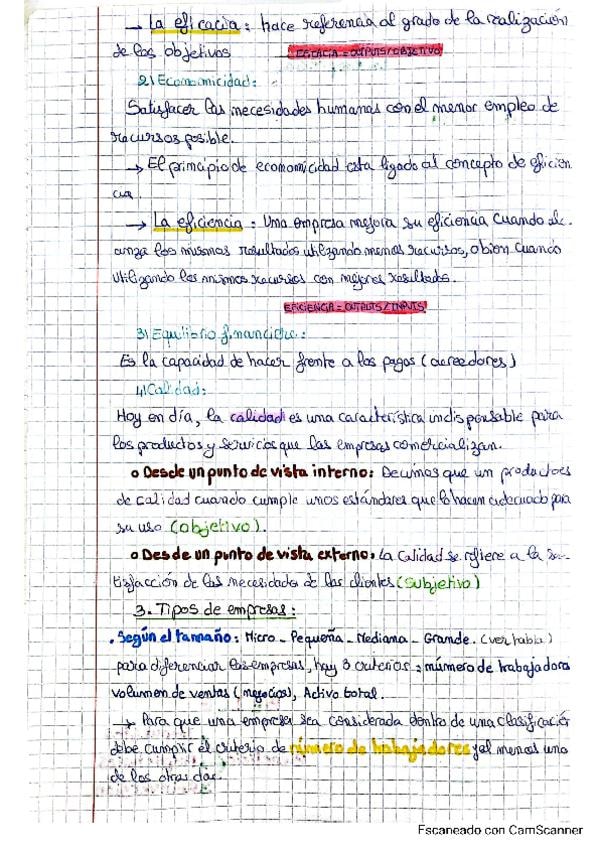 → La eficacia : hace referencia al grado de la realización
de los objetivos EFICACIA = OUTPUTS/OBJETIVO
2) Economicidad :
Satisfacer las necesidades humanas con el menor empleo de
recursos posible.
→ El principio de economicidad esta ligado al concepto de eficien
cia.
→ La eficiencia : Una empresa mejora su eficiencia cuando al-
canza los mismos resultados utilizando menos recursos, o bien cuando
utilizando los mismos recursos con mejores resultados.
EFICIENCIA = OUTPUTS / INPUTS
3) Equilibrio financiero :
Es la capacidad de hacer frente a los pagos (acreedores)
4) Calidad :
Hoy en día, la calidad es una característica indispensable para
los productos y servicios que las empresas comercializan.
o Desde un punto de vista interno : Decimos que un producto es
de calidad cuando cumple unos estándares que lo hacen adecuado para
su uso (objetivo).
o Desde un punto de vista externo : la calidad se refiere a la sa-
tisfacción de las necesidades de los clientes (subjetivo)
3. Tipos de empresas :
. Según el tamaño : Micro - Pequeña - Mediana - Grande. (ver tabla)
para diferenciar las empresas, hay 3 criterios : número de trabajadores
volumen de ventas (negocios), Activo total.
→ Para que una empresa sea considerada dentro de una clasificación
debe cumplir el criterio de número de trabajadores y al menos uno
de los otros dos.
Escaneado con CamScanner